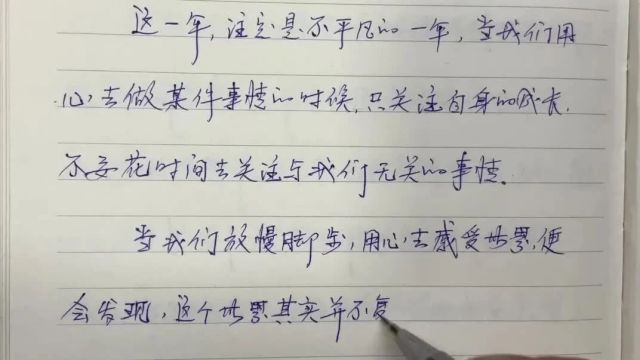 这一年,注定是不平凡的一年,当我们用
心去做某件事情的时候,只关注自身的成长.
不要花时间去关注与我们无关的事情.
当我们放慢脚步,用心去感受世界,便
会发现,这个世界其实并不复